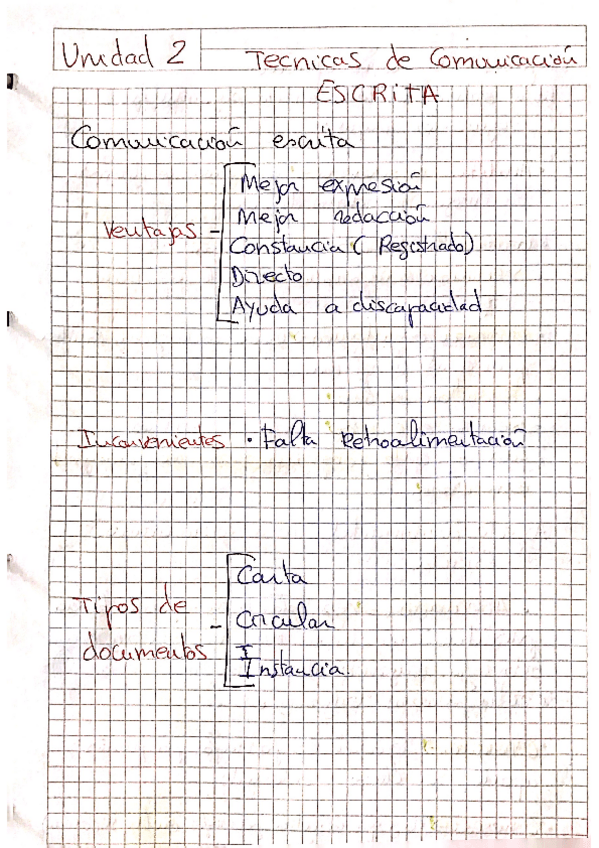 Unidad 2
Tecnicas de Comunicación
ESCRITA
Comunicación escrita
Ventajas -
Mejor expresión
Mejor redacción
Constancia (Registrado)
Directo
Ayuda a discapacidad
Inconvenientes • Falta Retroalimentación
Tipos de documentos -
Carta
Circular
Instancia.